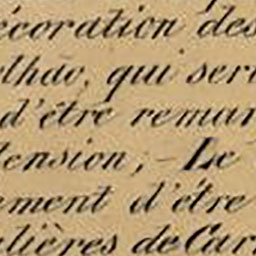 écoration des
elhão, qui ser
d'être remar
tension;-Le
ement d'être
ulières de Car